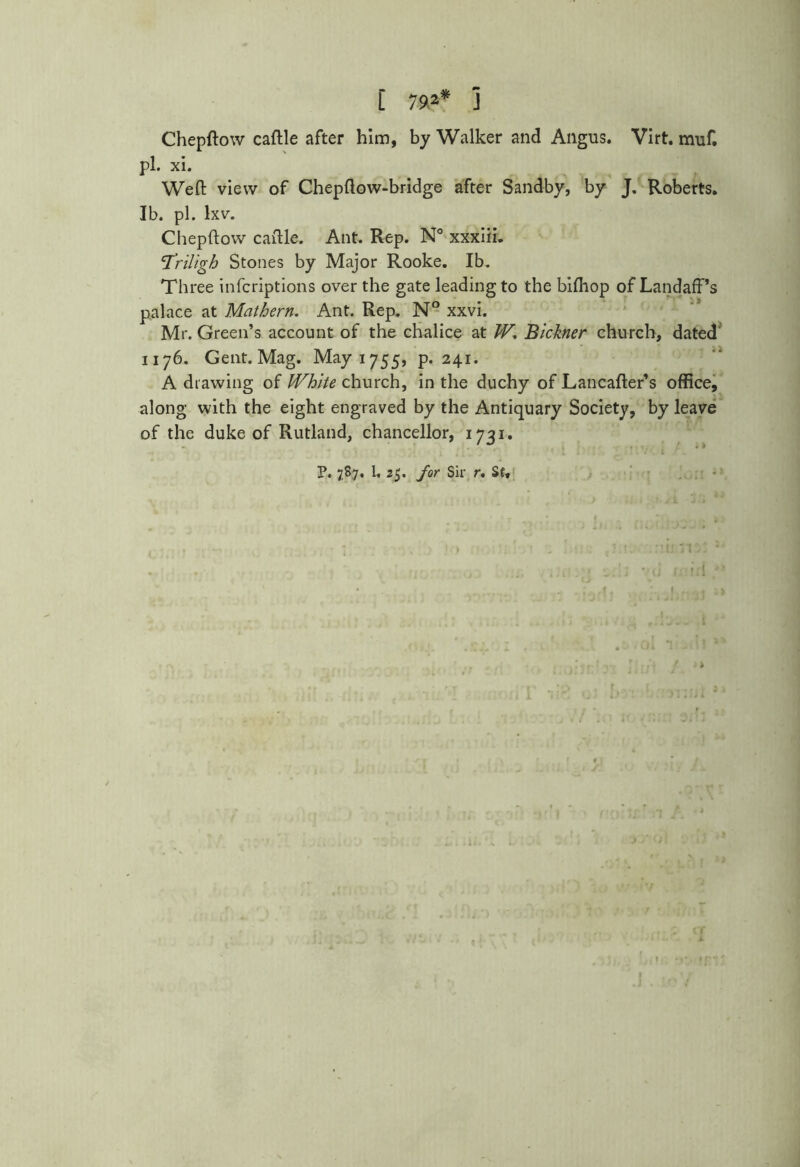 [ 792* ]
Chepſtow caſtle after him, by Walker and Angus. Virt. muſ.
pl. xi.
Weſt view of Chepſtow-bridge after Sandby, by J. Roberts.
Ib. pl. lxv.
Chepſtow caſtle. Ant. Rep. N° xxxiii.
Triligh Stones by Major Rooke. Ib.
Three inſcriptions over the gate leading to the biſhop of Landaff’s
palace at Mathern. Ant. Rep. N° xxvi.
Mr. Green’s account of the chalice at W. Bickner church, dated
1176. Gent. Mag. May 1755, p. 241.
A drawing of White church, in the duchy of Lancaſter’s office,
along with the eight engraved by the Antiquary Society, by leave
of the duke of Rutland, chancellor, 1731.
P. 787. l. 25. for Sir r. St.